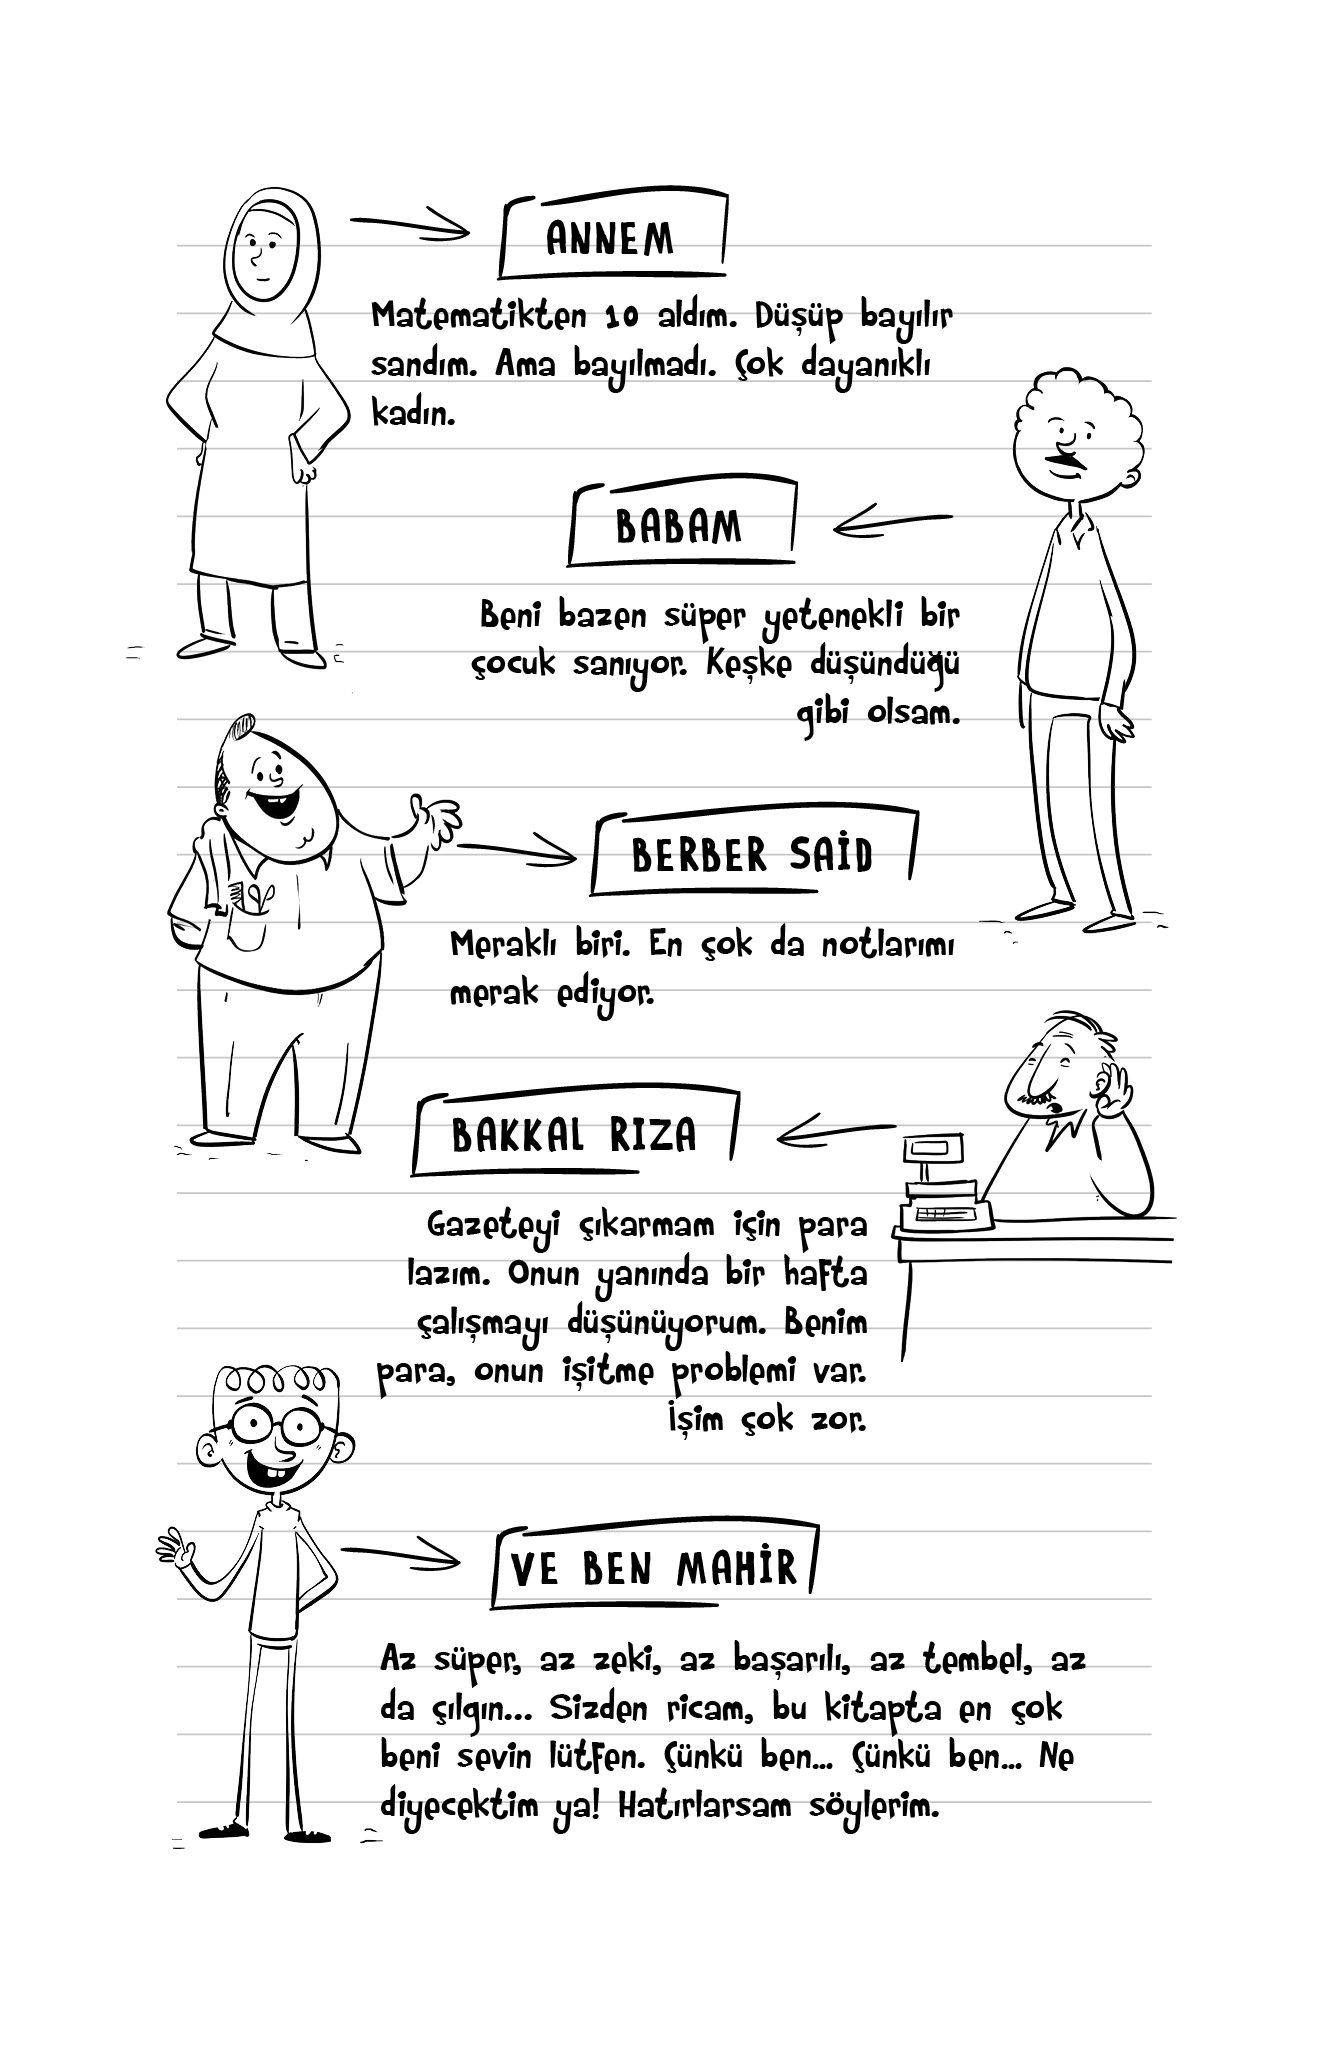 ANNEM
Matematikten 10 aldım. Düşüp bayılır
sandım. Ama bayılmadı. Çok dayanıklı
kadın.
BABAM
Beni bazen süper yetenekli bir
çocuk sanıyor. Keşke düşündüğü
gibi olsam.
BERBER SAİD
Meraklı biri. En çok da notlarımı
merak ediyor.
BAKKAL RIZA
Gazeteyi çıkarmam için para
lazım. Onun yanında bir hafta
çalışmayı düşünüyorum. Benim
para, onun işitme problemi var.
İşim çok zor.
VE BEN MAHİR
Az süper, az zeki, az başarılı, az tembel, az
da çılgın... Sizden ricam, bu kitapta en çok
beni sevin lütfen. Çünkü ben... Çünkü ben... Ne
diyecektim ya! Hatırlarsam söylerim.